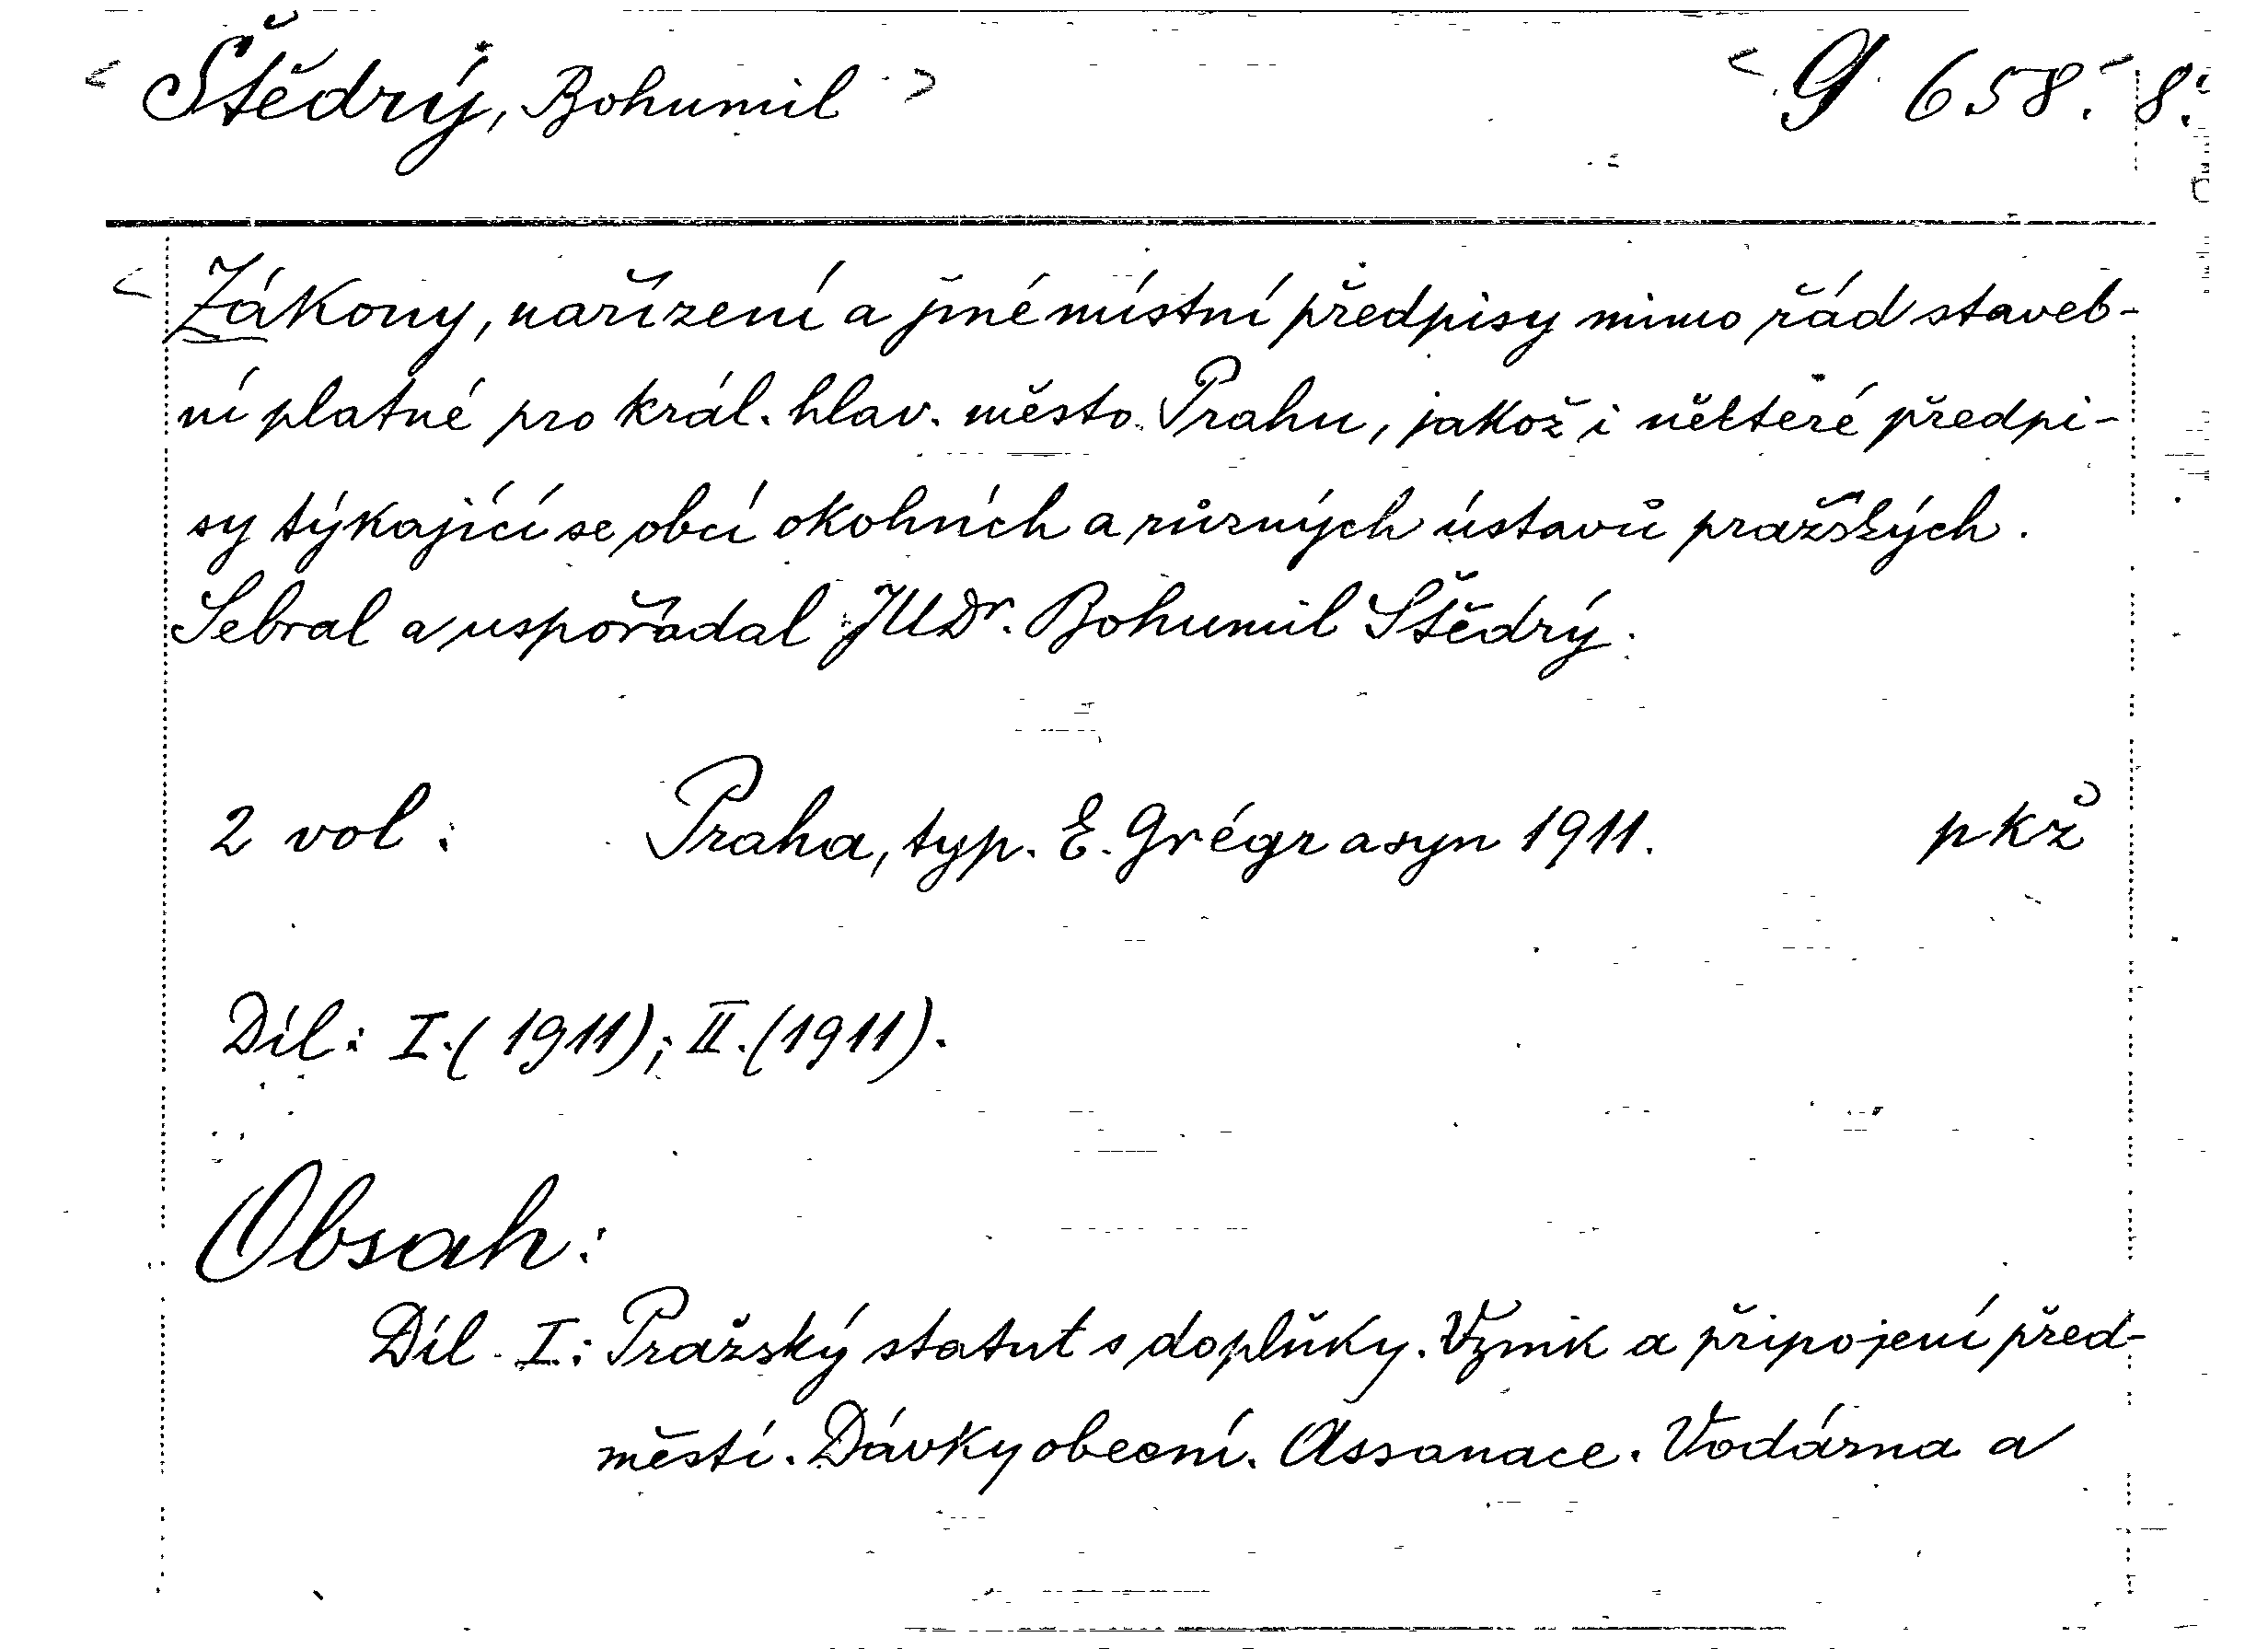 Štědrý, Bohumil G 658. 8.
Zákony, nařízení a jiné místní předpisy mimo řád staveb-
ní platné pro král. hlav. město Prahu, jakož i některé předpi-
sy týkající se obcí okolních a různých ústavů pražských.
Sebral a uspořádal JUDr. Bohumil Štědrý.
2 vol: Praha, typ. E. Grégr a syn 1911. pkž
Díl: I. (1911); II. (1911).
Obsah:
Díl I: Pražský statut s doplňky. Vznik a připojení před-
městí. Dávky obecní. Assanace. Vodárna a